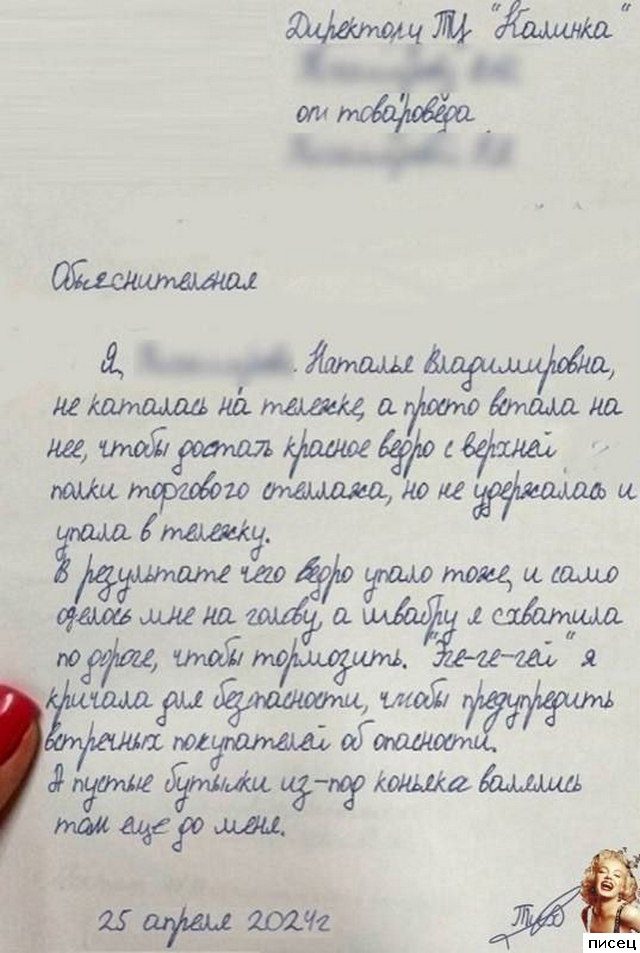 Директору ТЦ "Калинка"
от товароведа
Объяснительная
Я, Наталье Владимировна,
не каталась на тележке, а просто встала на
нее, чтобы достать красное ведро с верхней
полки торгового стеллажа, но не удержалась и
упала в тележку.
В результате чего ведро упало тоже, и само
оделось мне на голову, а швабру я схватила
по дороге, чтобы тормозить. "Эге-ге-гей" я
кричала для безопасности, чтобы предупредить
встречных покупателей об опасности.
А пустые бутылки из-под коньяка валялись
там еще до меня.
25 апреля 2024г
писец